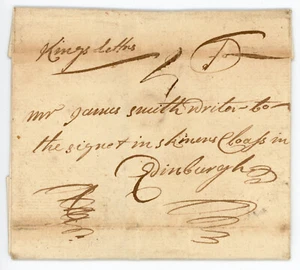 Kings letters
mr James smith writer to
the signet in skiners Closs in
Edinburgh